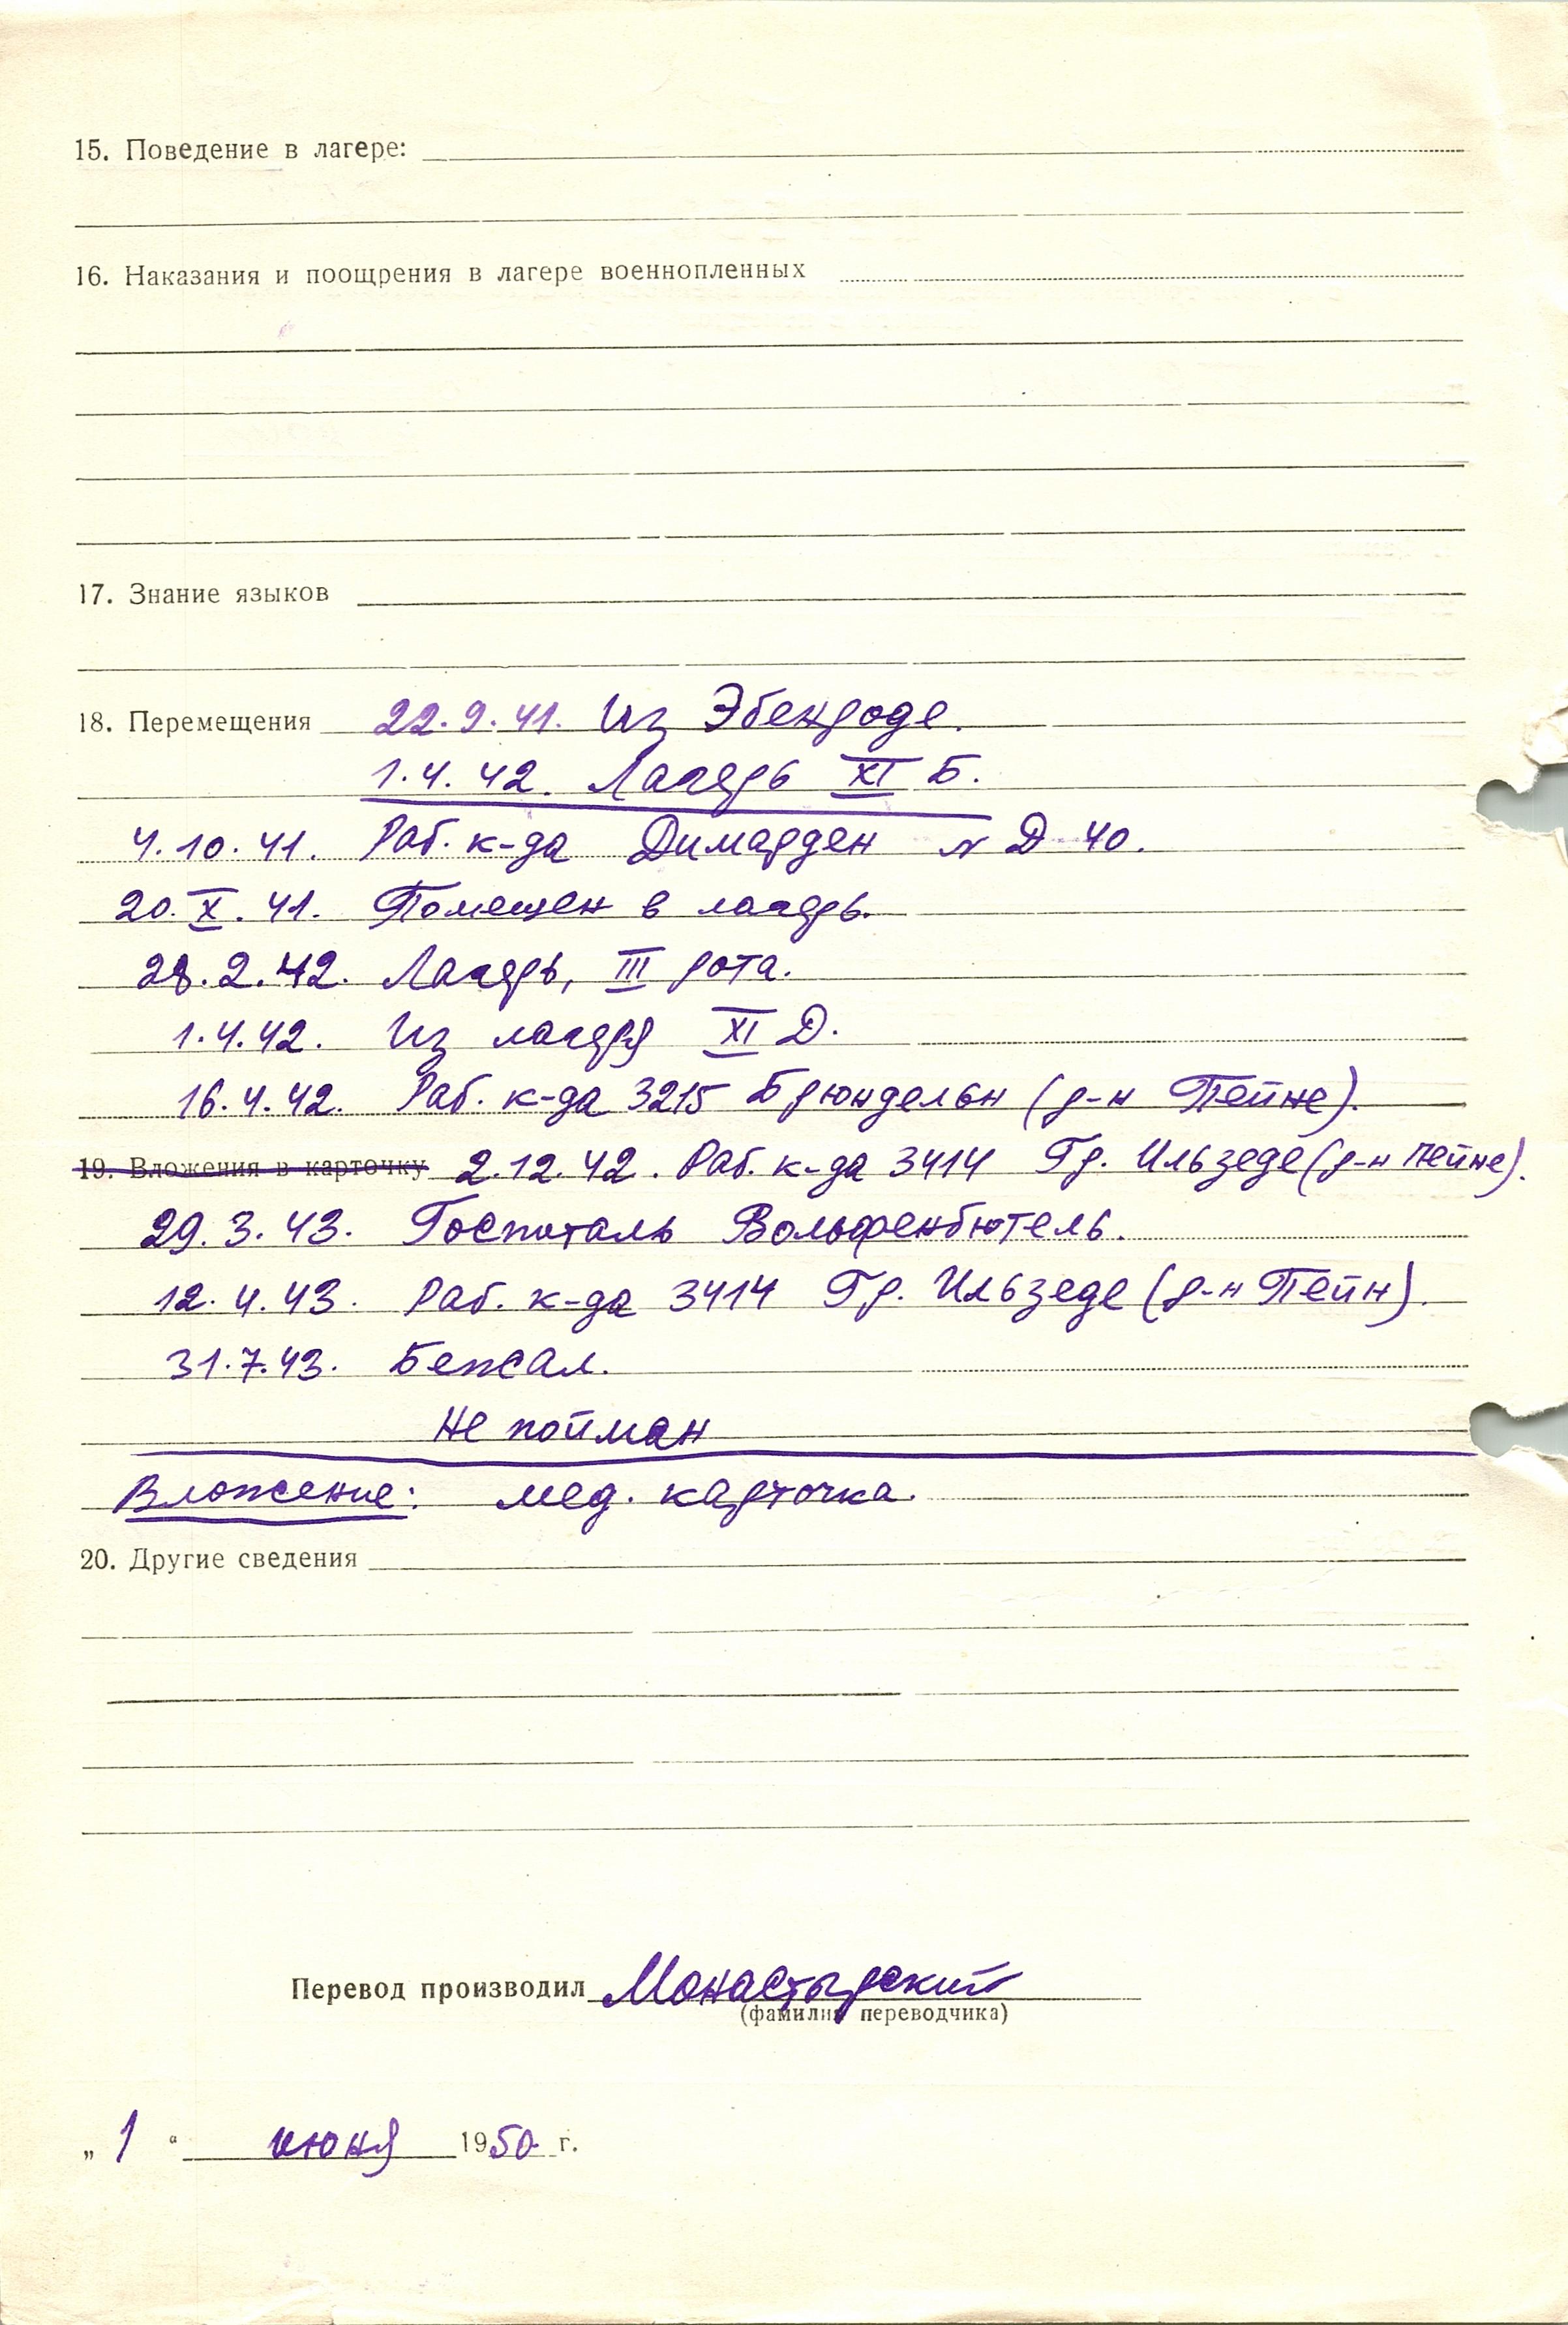 15. Поведение в лагере:
16. Наказания и поощрения в лагере военнопленных
17. Знание языков
18. Перемещения 22.9.41. Из Эбенроде.
1.4.42. Лагерь XI Б.
4.10.41. Раб. к-да Димарден № Д-40.
20.X.41. Помещен в лагерь.
28.2.42. Лагерь, III рота.
1.4.42. Из лагеря XI Д.
16.4.42. Раб. к-да 3215 Брюндельн (р-н Пейне).
19. Вложения в карточку 2.12.42. Раб. к-да 3414 Гр. Ильзеде (р-н Пейне).
29.3.43. Госпиталь Вольфенбютель.
12.4.43. Раб. к-да 3414 Гр. Ильзеде (р-н Пейн).
31.7.43. Бежал.
Не пойман
Вложение: мед. карточка.
20. Другие сведения
Перевод производил Монастырский
(фамилия переводчика)
„1“ июня 1950 г.